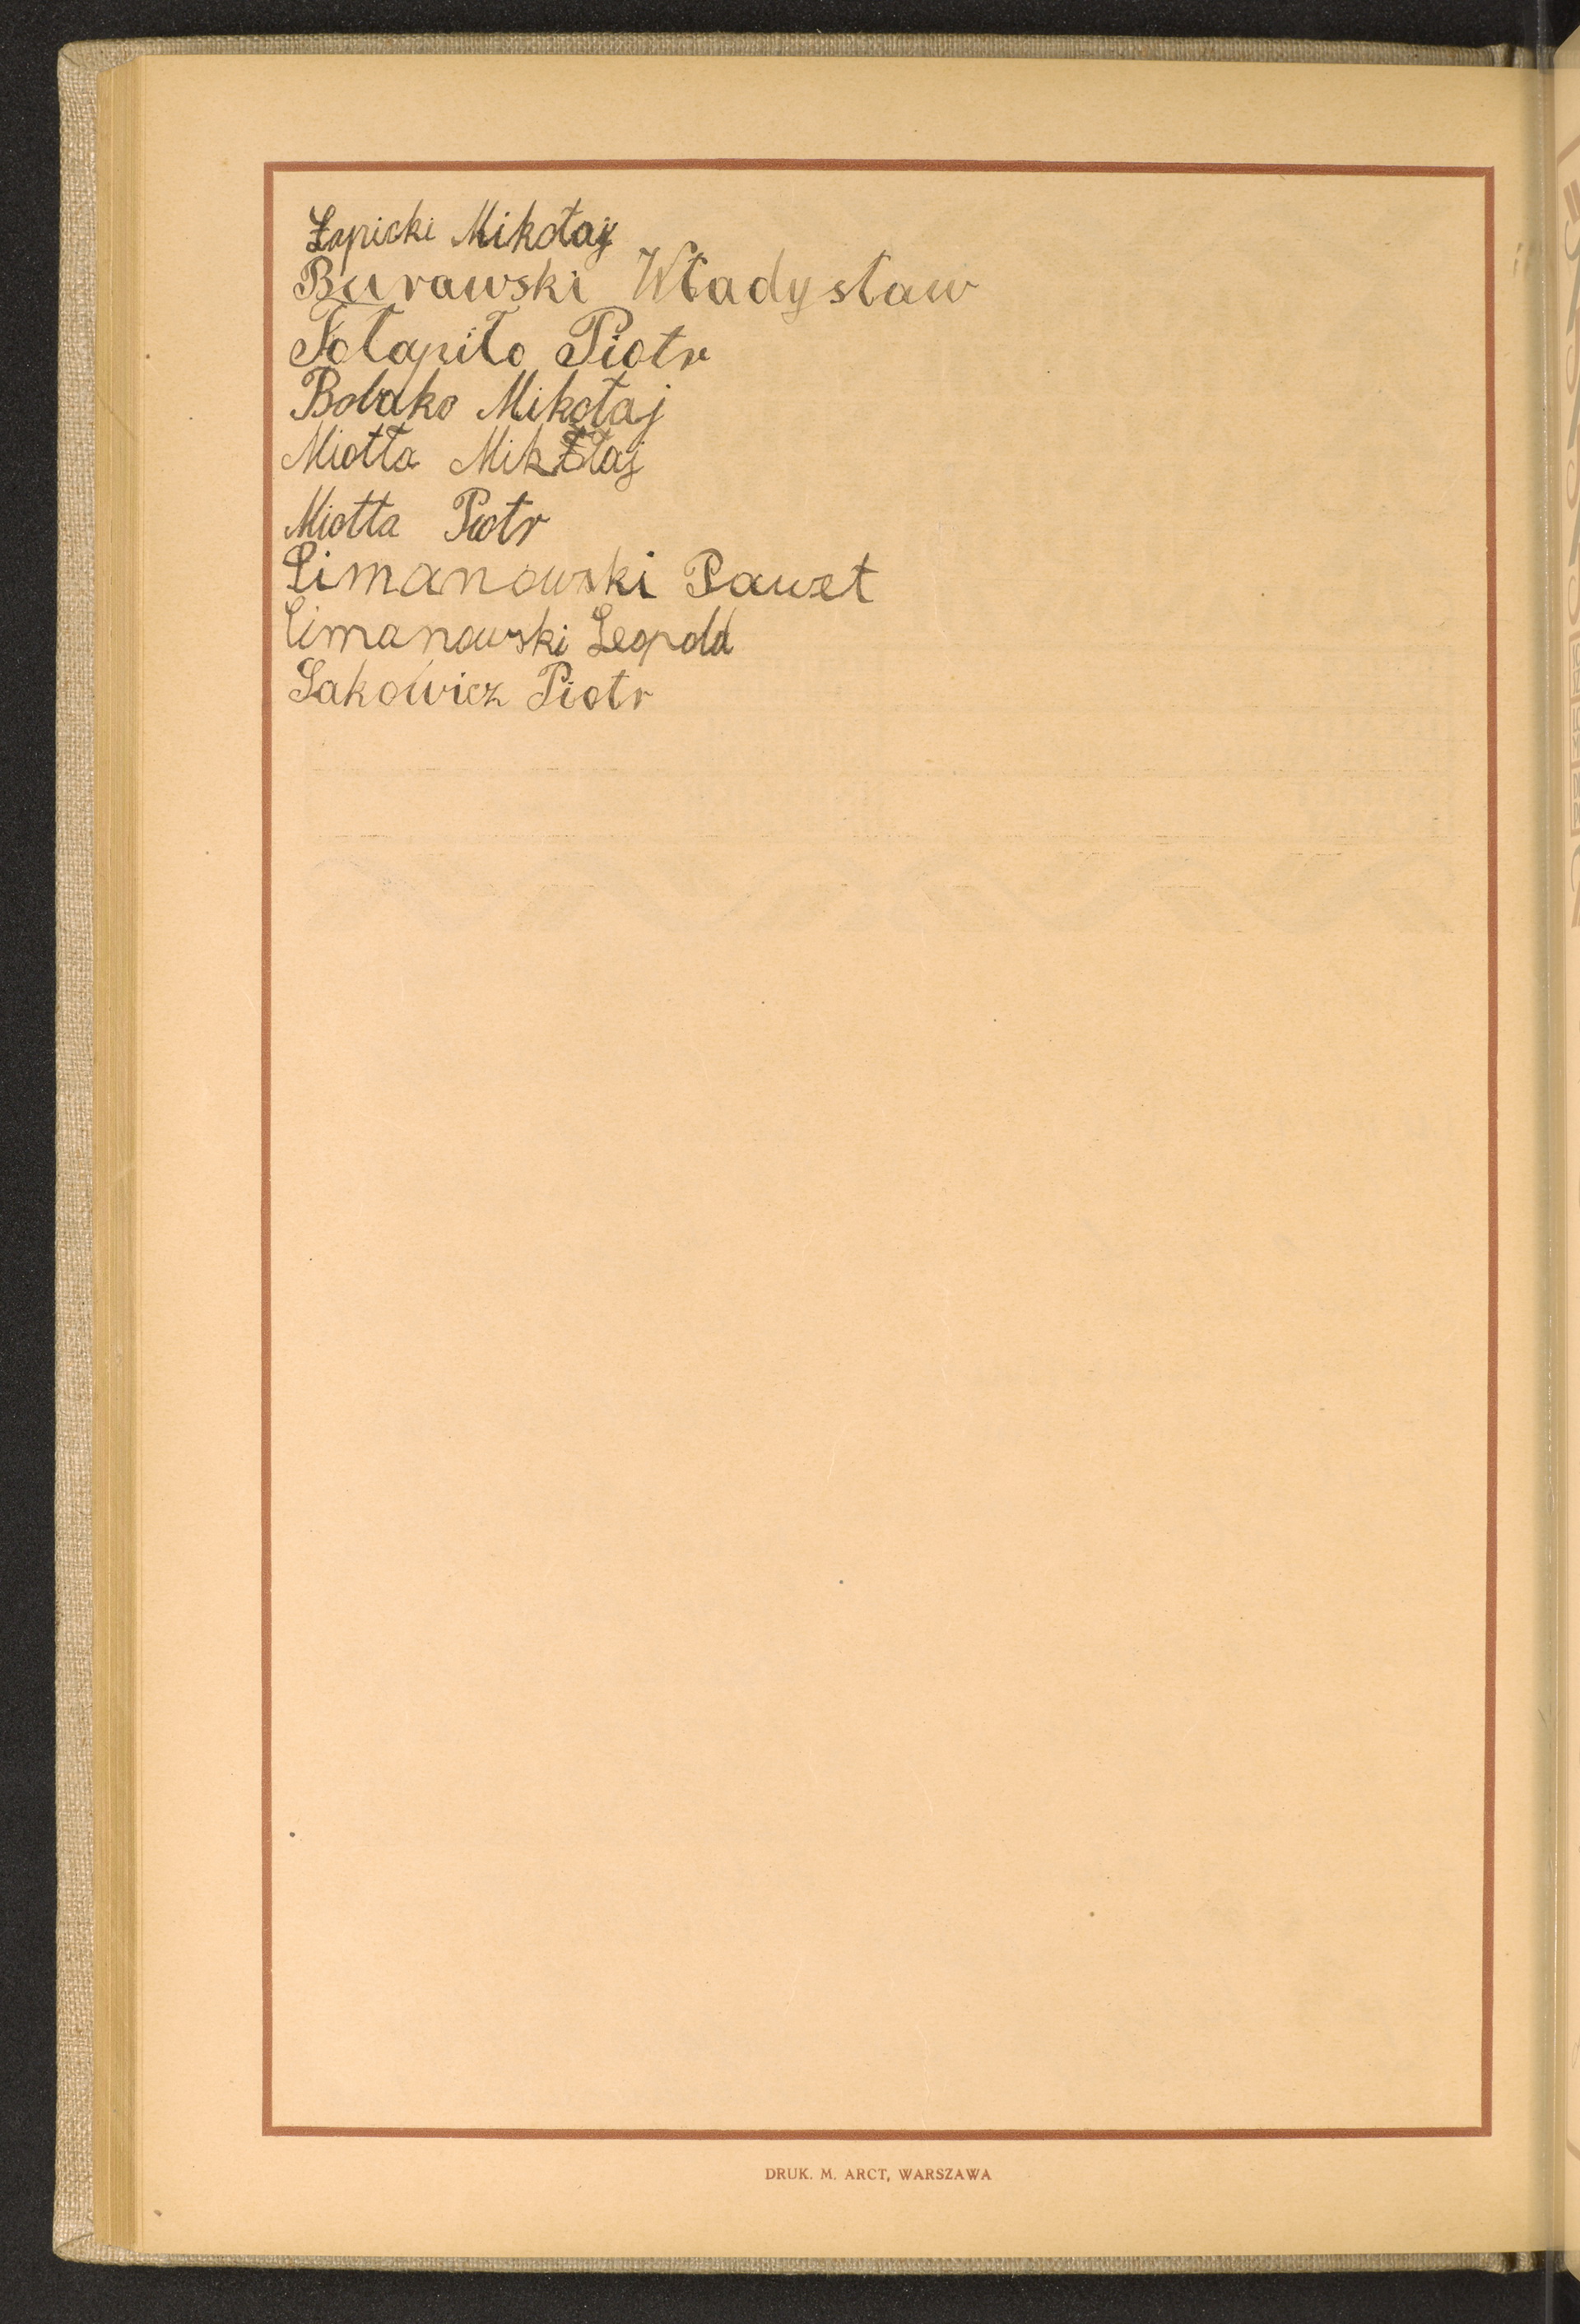 Łapicki Mikołaj
Burawski Władysław
Potapiło Piotr
Bobako Mikołaj
Miotła Mikołaj
Miotta Piotr
Limanowski Paweł
Limanowski Leopold
Sakowicz Piotr
DRUK. M. ARCT, WARSZAWA